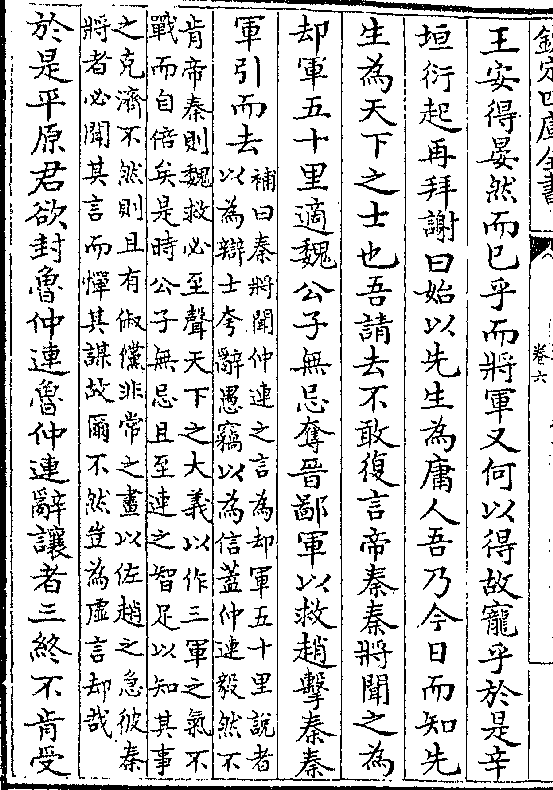 欽定四庫全書
卷六
王安得晏然而已乎而將軍又何以得故寵乎於是辛
垣衍起再拜謝曰始以先生為庸人吾乃今日而知先
生為天下之士也吾請去不敢復言帝秦秦將聞之為
却軍五十里適魏公子無忌奪晉鄙軍以救趙擊秦秦
軍引而去
補曰秦將聞仲連之言為却軍五十里説者
以為辯士夸辭愚竊以為信蓋仲連毅然不
肯帝秦則魏救必至聲天下之大義以作三軍之氣不
戰而自倍矣是時公子無忌且至連之智足以知其事
之克濟不然則且有俶儻非常之畫以佐趙之急彼秦
將者必聞其言而憚其謀故爾不然豈為虛言却哉
於是平原君欲封魯仲連魯仲連辭讓者三終不肯受